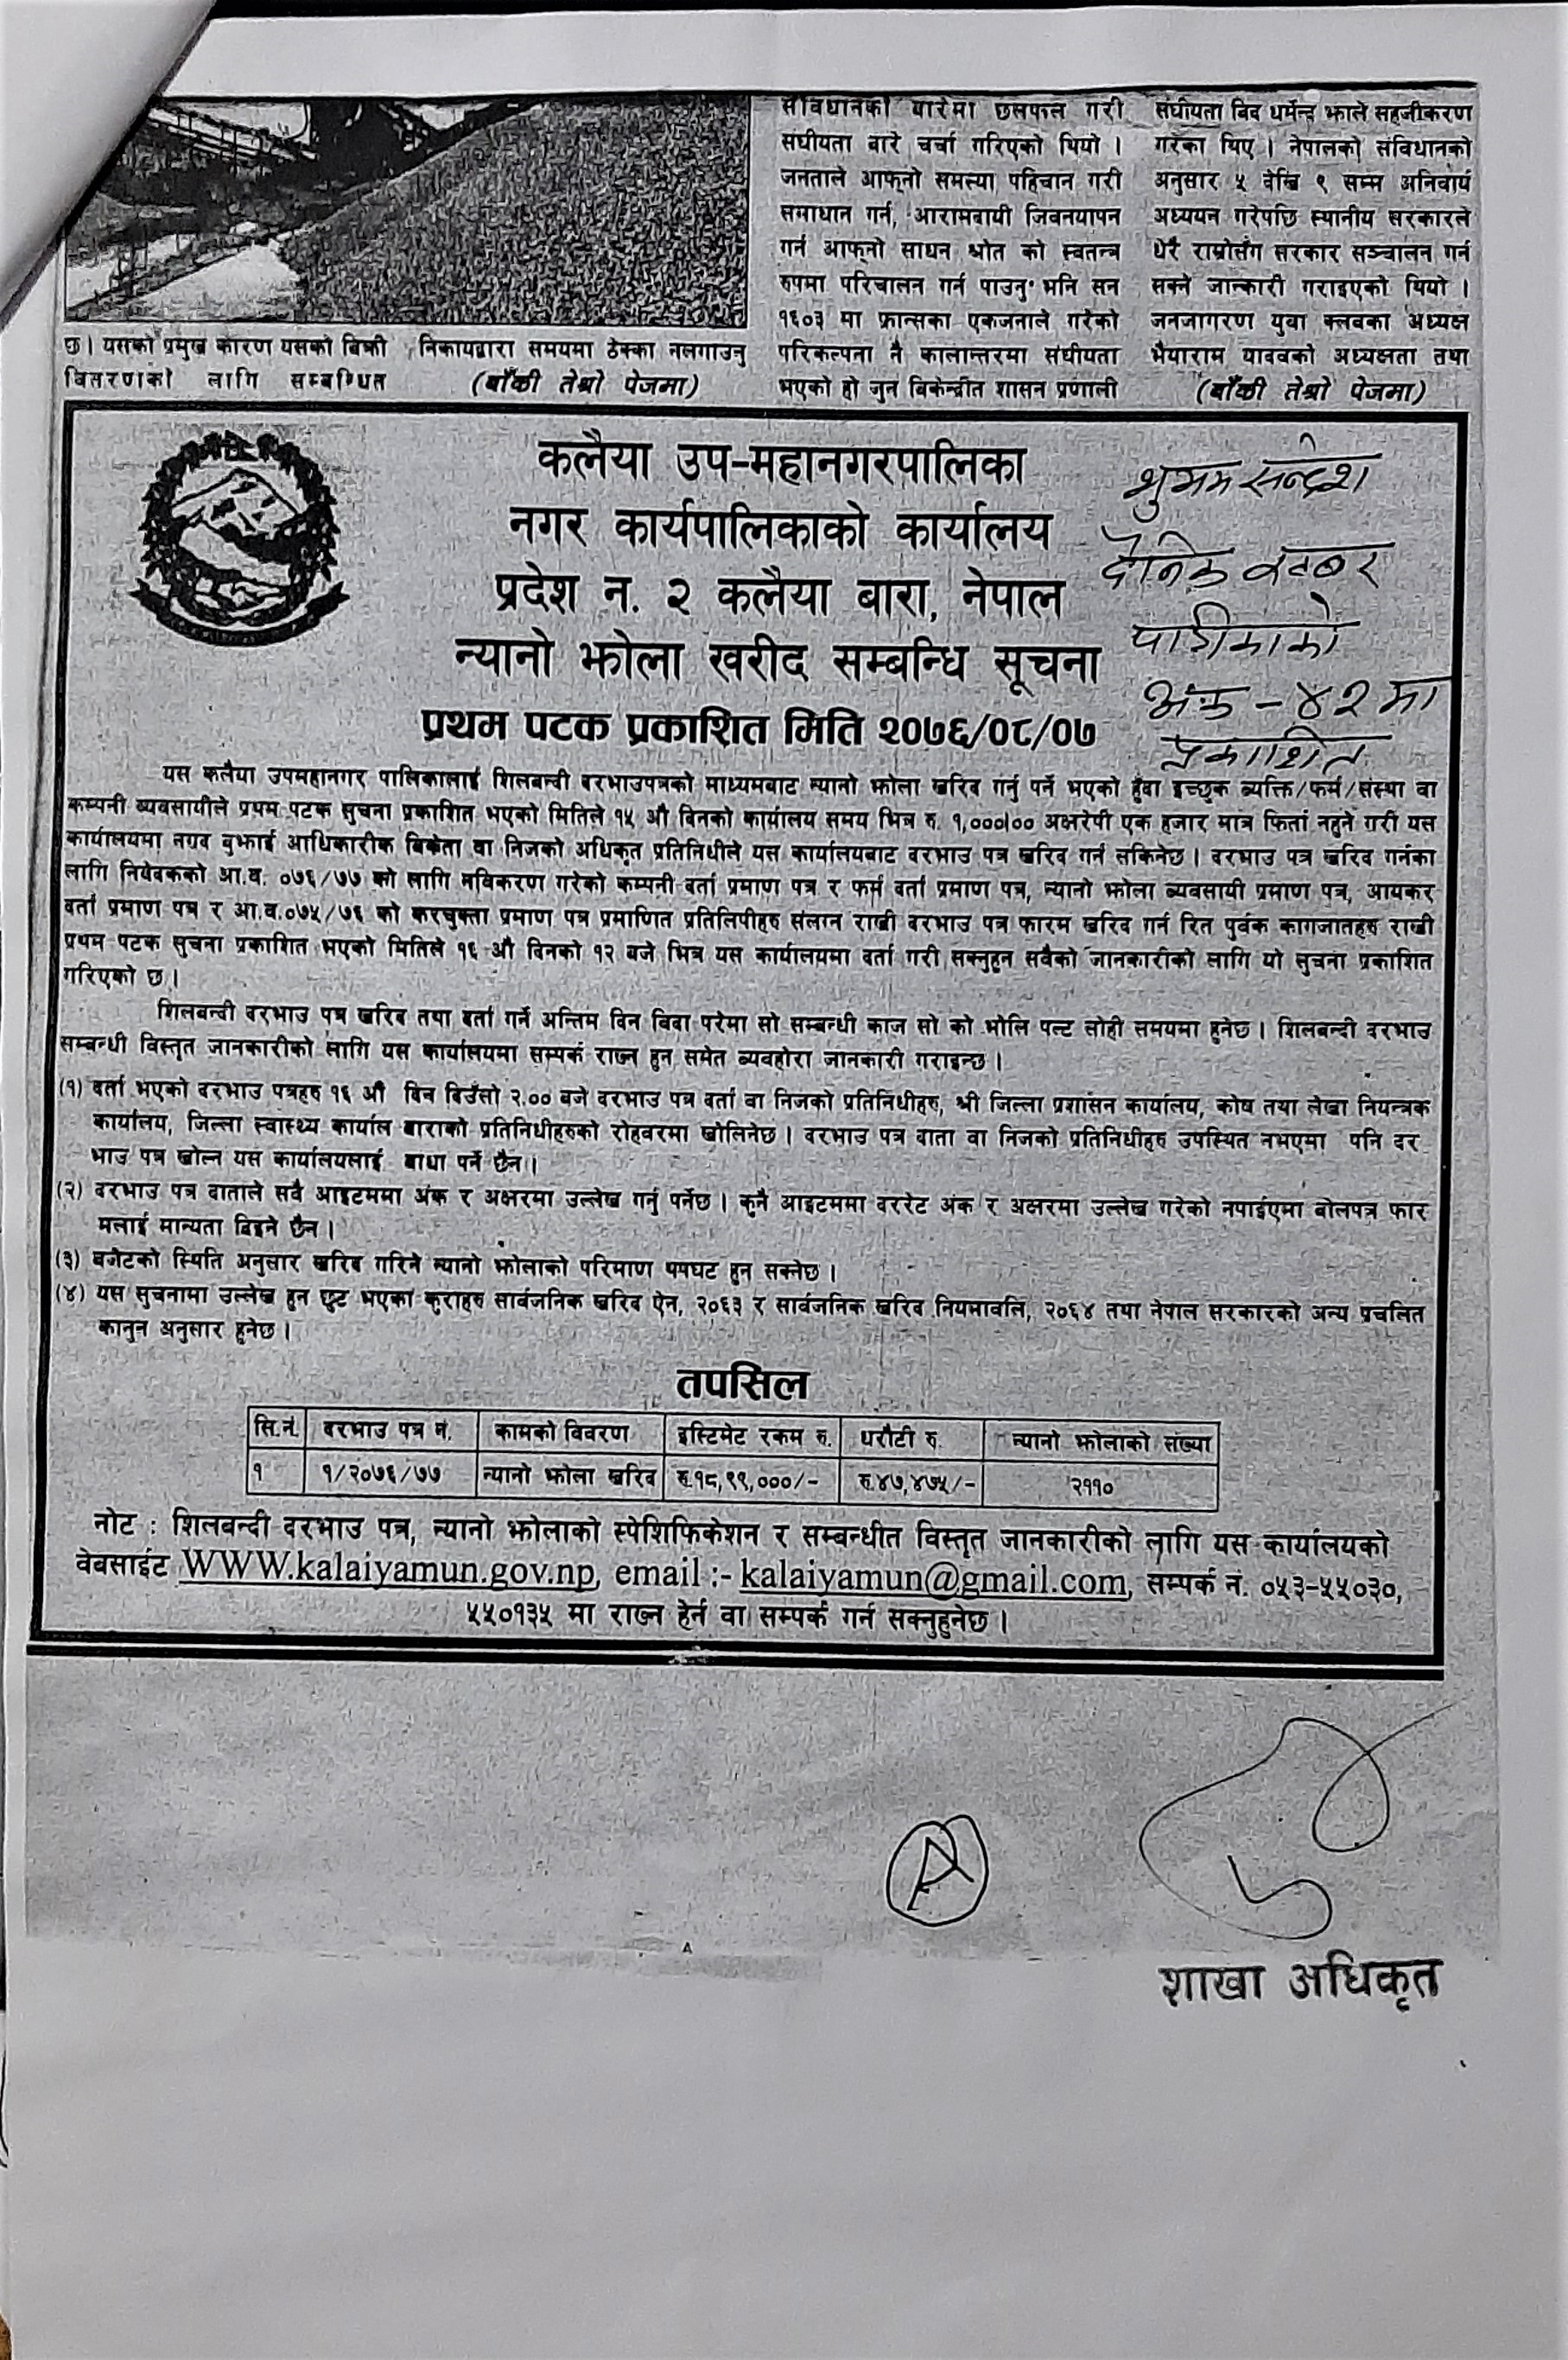 संविधानको बारेमा छलफल गरी
संघीयता बारे चर्चा गरिएको थियो ।
जनताले आफ्नो समस्या पहिचान गरी
समाधान गर्न, आरामदायी जिवनयापन
गर्न आफ्नो साधन श्रोत को स्वतन्त्र
रुपमा परिचालन गर्न पाउनु भनि सन
१६०३ मा फ्रान्सका एकजनाले गरेको
परिकल्पना नै कालान्तरमा संघीयता
भएको हो जुन बिकेन्द्रीत शासन प्रणाली
संघीयता बिद धर्मेन्द्र झाले सहजीकरण
गरेका थिए । नेपालको संविधानको
अनुसार ५ देखि ९ सम्म अनिवार्य
अध्ययन गरेपछि स्थानीय सरकारले
धेरै राम्रोसँग सरकार सञ्चालन गर्न
सक्ने जान्कारी गराइएको थियो ।
जनजागरण युवा क्लवका अध्यक्ष
भैयाराम यादवको अध्यक्षता तथा
(बाँकी तेश्रो पेजमा)
छ। यसको प्रमुख कारण यसको बिक्री
बितरणको लागि सम्बन्धित
निकायद्वारा समयमा ठेक्का नलगाउनु
(बाँकी तेश्रो पेजमा)
कलैया उप-महानगरपालिका
नगर कार्यपालिकाको कार्यालय
प्रदेश न. २ कलैया बारा, नेपाल
न्यानो झोला खरीद सम्बन्धि सूचना
प्रथम पटक प्रकाशित मिति २०७६/०८/०७
सन्देश
दैनिक
अंक - ४२ मा
प्रकाशित
यस कलैया उपमहानगर पालिकालाई शिलबन्दी दरभाउपत्रको माध्यमबाट न्यानो झोला खरिद गर्नु पर्ने भएको हुँदा इच्छुक व्यक्ति/फर्म/संस्था वा
कम्पनी व्यवसायीले प्रथम पटक सुचना प्रकाशित भएको मितिले १५ औ दिनको कार्यालय समय भित्र रु. १,०००।०० अक्षरेपी एक हजार मात्र फिर्ता नहुने गरी यस
कार्यालयमा नगद बुझाई आधिकारीक बिक्रेता वा निजको अधिकृत प्रतिनिधीले यस कार्यालयबाट दरभाउ पत्र खरिद गर्न सकिनेछ । दरभाउ पत्र खरिद गर्नका
लागि निवेदकको आ.व. ०७६/७७ को लागि नविकरण गरेको कम्पनी दर्ता प्रमाण पत्र र फर्म दर्ता प्रमाण पत्र, न्यानो झोला व्यवसायी प्रमाण पत्र, आयकर
दर्ता प्रमाण पत्र र आ.व.०७५/७६ को करचुक्ता प्रमाण पत्र प्रमाणित प्रतिलिपीहरु संलग्न राखी दरभाउ पत्र फारम खरिद गर्न रित पुर्वक कागजातहरु राखी
प्रथम पटक सुचना प्रकाशित भएको मितिले १६ औ दिनको १२ बजे भित्र यस कार्यालयमा दर्ता गरी सक्नुहुन सवैको जानकारीको लागि यो सुचना प्रकाशित
गरिएको छ ।
शिलबन्दी दरभाउ पत्र खरिद तथा दर्ता गर्ने अन्तिम दिन विदा परेमा सो सम्बन्धी काज सो को भोलि पल्ट सोही समयमा हुनेछ । शिलबन्दी दरभाउ
सम्बन्धी विस्तृत जानकारीको लागि यस कार्यालयमा सम्पर्क राख्न हुन समेत व्यवहोरा जानकारी गराइन्छ ।
(१) दर्ता भएको दरभाउ पत्रहरु १६ औ दिन दिउँसो २.०० बजे दरभाउ पत्र दर्ता वा निजको प्रतिनिधीहरु, श्री जिल्ला प्रशासन कार्यालय, कोष तथा लेखा नियन्त्रक
कार्यालय, जिल्ला स्वास्थ्य कार्याल बाराको प्रतिनिधीहरुको रोहवरमा खोलिनेछ । दरभाउ पत्र दाता वा निजको प्रतिनिधीहरु उपस्थित नभएमा पनि दर
भाउ पत्र खोल्न यस कार्यालयलाई बाधा पर्ने छैन ।
(२) दरभाउ पत्र दाताले सवै आइटममा अंक र अक्षरमा उल्लेख गर्नु पर्नेछ । कुनै आइटममा दररेट अंक र अक्षरमा उल्लेख गरेको नपाईएमा बोलपत्र फार
मलाई मान्यता दिइने छैन ।
(३) बजेटको स्थिति अनुसार खरिद गरिने न्यानो झोलाको परिमाण थपघट हुन सक्नेछ ।
(४) यस सुचनामा उल्लेख हुन छुट भएका कुराहरु सार्वजनिक खरिद ऐन, २०६३ र सार्वजनिक खरिद नियमावलि, २०६४ तथा नेपाल सरकारको अन्य प्रचलित
कानुन अनुसार हुनेछ ।
तपसिल
सि.नं. दरभाउ पत्र नं. कामको विवरण इस्टिमेट रकम रु. धरौटी रु. न्यानो झोलाको संख्या
१ १/२०७६/७७ न्यानो झोला खरिद रु.१८,९९,०००/- रु.४७,४७५/- २११०
नोट : शिलबन्दी दरभाउ पत्र, न्यानो झोलाको स्पेशिफिकेशन र सम्बन्धीत विस्तृत जानकारीको लागि यस कार्यालयको
वेबसाईट WWW.kalaiyamun.gov.np, email :- kalaiyamun@gmail.com, सम्पर्क नं. ०५३-५५०३०,
५५०१३५ मा राख्न हेर्न वा सम्पर्क गर्न सक्नुहुनेछ ।
A
शाखा अधिकृत